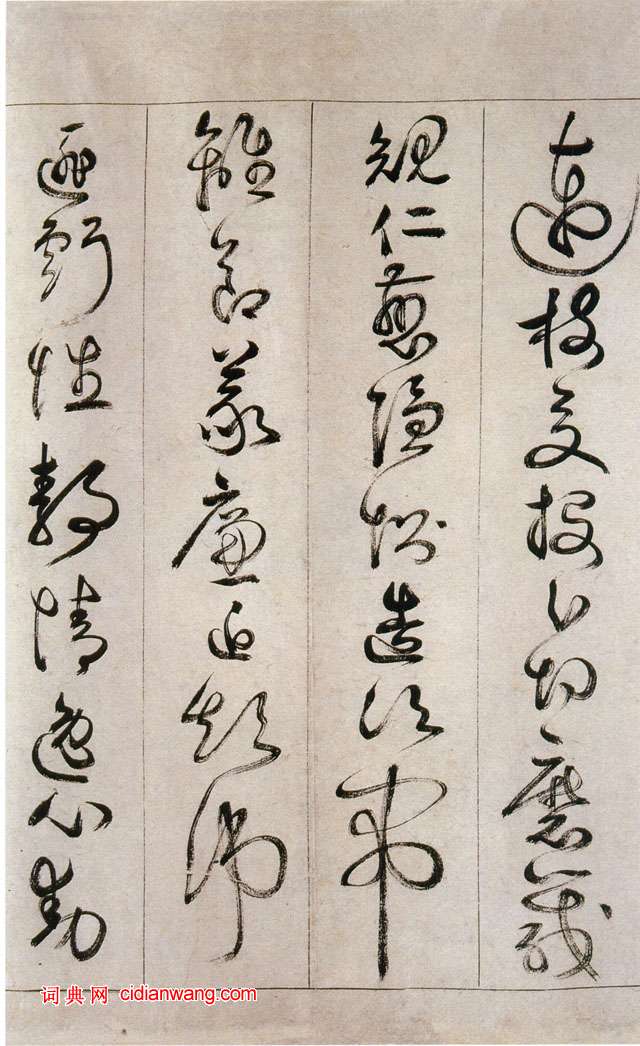 連枝交投分切磨箴
規仁慈隱惻造次弗
離節義廉退顛沛
匪虧性靜情逸心動
词典网 cidianwang.com